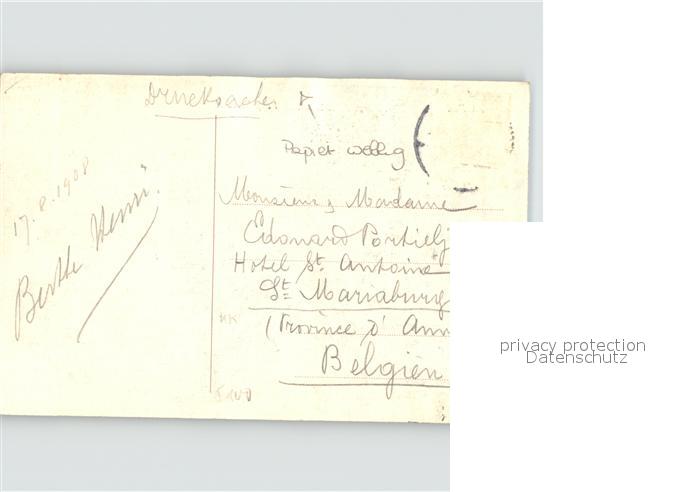 Drucksache
Papier wellig
17.8.1908
Berthe Henri.
Monsieur & Madame
Edouard Portielj
Hotel St. Antoine
St. Mariaburg
(Province d' Anv
Belgien
privacy protection
Datenschutz